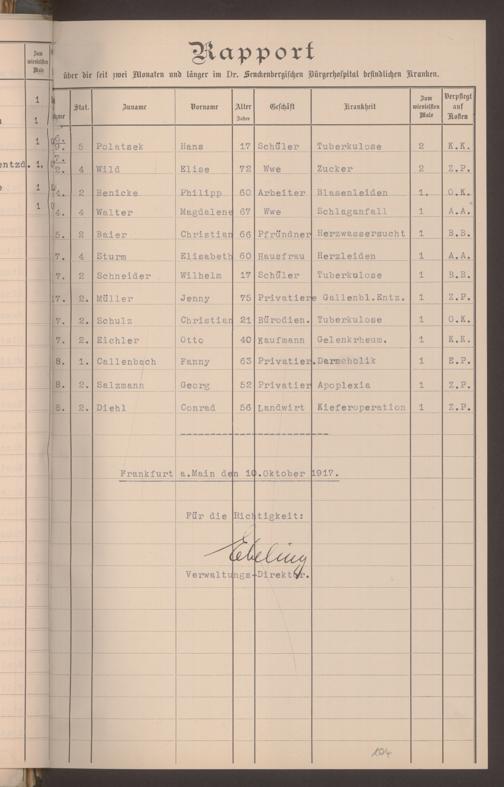 Rapport
über die seit zwei Monaten und länger im Dr. Senckenbergischen Bürgerhospital befindlichen Kranken.
Stat. Zuname Vorname Alter Jahre Geschäft Krankheit Zum wievielsten Male Verpflegt auf Kosten
5 Polatsek Hans 17 Schüler Tuberkulose 2 K.K.
4 Wild Elise 72 Wwe Zucker 2 Z.P.
4. 2 Henicke Philipp 60 Arbeiter Blasenleiden 1. O.K.
4. 4 Walter Magdalene 67 Wwe Schlaganfall 1 A.A.
5. 2 Baier Christian 66 Pfründner Herzwassersucht 1 B.B.
7. 4 Sturm Elisabeth 60 Hausfrau Herzleiden 1 A.A.
7. 2 Schneider Wilhelm 17 Schüler Tuberkulose 1 B.B.
7. 2. Müller Jenny 75 Privatiere Gallenbl.Entz. 1 Z.P.
7. 2. Schulz Christian 21 Bürodien. Tuberkulose 1 O.K.
7. 2. Eichler Otto 40 Kaufmann Gelenkrheum. 1 K.K.
8. 1. Callenbach Fanny 63 Privatier. Darmcholik 1 E.P.
8. 2. Salzmann Georg 52 Privatier Apoplexia 1 Z.P.
8. 2. Diehl Conrad 56 Landwirt Kieferoperation 1 Z.P.
Frankfurt a.Main den 10.Oktober 1917.
Für die Richtigkeit:
Ebeling
Verwaltungs-Direktor.
104